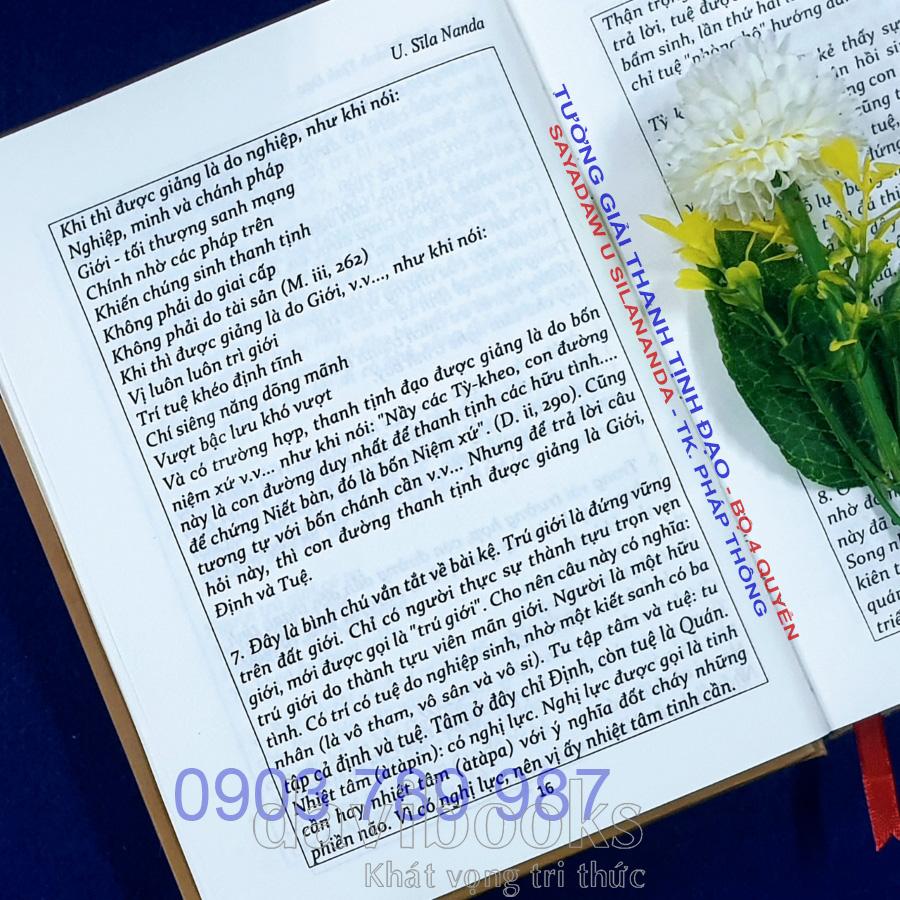 U. Sīla Nanda
Khi thì được giảng là do nghiệp, như khi nói:
Nghiệp, minh và chánh pháp
Giới - tối thượng sanh mạng
Chính nhờ các pháp trên
Khiến chúng sinh thanh tịnh
Không phải do giai cấp
Không phải do tài sản (M. iii, 262)
Khi thì được giảng là do Giới, v.v..., như khi nói:
Vị luôn luôn trì giới
Trí tuệ khéo định tĩnh
Chí siêng năng dõng mãnh
Vượt bậc lưu khó vượt
Và có trường hợp, thanh tịnh đạo được giảng là do bốn
niệm xứ v.v... như khi nói: "Nầy các Tỳ-kheo, con đường
này là con đường duy nhất để thanh tịnh các hữu tình....
để chứng Niết bàn, đó là bốn Niệm xứ". (D. ii, 290). Cũng
tương tự với bốn chánh cần v.v... Nhưng để trả lời câu
hỏi này, thì con đường thanh tịnh được giảng là Giới,
Định và Tuệ.
7. Đây là bình chú vắn tắt về bài kệ. Trú giới là đứng vững
trên đất giới. Chỉ có người thực sự thành tựu trọn vẹn
giới, mới được gọi là "trú giới". Cho nên câu này có nghĩa:
trú giới do thành tựu viên mãn giới. Người là một hữu
tình. Có trí có tuệ do nghiệp sinh, nhờ một kiết sanh có ba
nhân (là vô tham, vô sân và vô si). Tu tập tâm và tuệ: tu
tập cả định và tuệ. Tâm ở đây chỉ Định, còn tuệ là Quán.
Nhiệt tâm (àtàpin): có nghị lực. Nghị lực được gọi là tinh
cần hay nhiệt tâm (àtàpa) với ý nghĩa đốt cháy những
phiền não. Vì có nghị lực, nên vị ấy nhiệt tâm tinh cần.
16
TƯỜNG GIẢI THANH TỊNH ĐẠO - BỘ 4 QUYỂN
SAYADAW U SILANANDA - TK. PHÁP THÔNG
Thận trọng
trả lời, tuệ được
bẩm sinh, lần thứ hai
chỉ tuệ "phòng hộ" hướng
kẻ thấy sự
hồi
con
Tỳ
cũng
tuệ,
đứng
lực
8.
nhờ
này đã
Song
kiên
quán
triể
0903 769 987
davibooks
Khát vọng tri thức